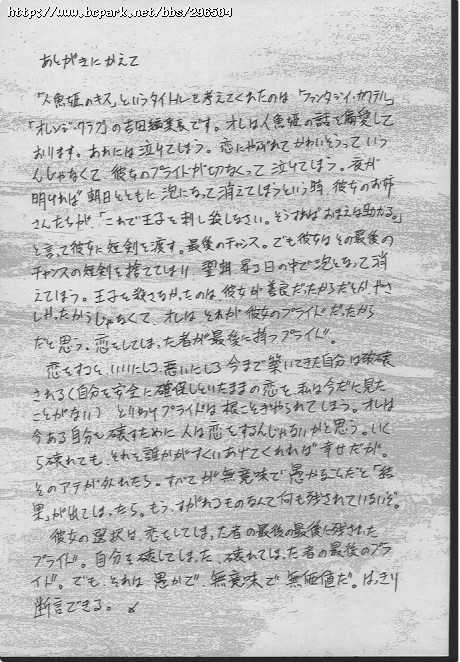 https://www.bcpark.net/bbs/296504
あとがきにかえて
「人魚姫のキス」というタイトルを考えてくれたのは「ファンタジィ・カクテル」
「オレンジ・クラブ」の吉田編集長です。オレは人魚姫の話を偏愛して
おります。あれには泣けてしまう。恋にやぶれてかわいそうってい
うんじゃなくて、彼女のプライドが切なくって泣けてしまう。夜が
明ければ朝日とともに泡になって消えてしまうという時、彼女のお姉
さんたちが、「これで王子を刺し殺しなさい。そうすればおまえは助かる。」
と言って彼女に短剣を渡す。最後のチャンス。でも彼女はその最後の
チャンスの短剣を捨ててしまい 翌朝、昇る日の中で泡となって消
えてしまう。王子を殺さなかったのは、彼女が善良だったからだとかやさ
しかったからじゃなくて、オレは それが彼女のプライドだったから
だと思う。恋をしてしまった者が最後に持つプライド。
恋をすると、いいにしろ、悪いにしろ 今まで築いてきた自分は破壊
される(自分を安全に確保しといたままの恋を、私は今だに見た
ことがない) とりわけプライドは根こそぎやられてしまう。オレは
今ある自分を壊すために 人は恋をするんじゃないかと思う。いく
ら壊れても、それを誰かがすくいあげてくれれば幸せだが。
そのアテが外れたら。すべてが無意味で愚かなことだと「結
果」が出てしまったら。もう、すがれるものなんて何も残されていないぞ。
彼女の選択は、恋をしてしまった者の最後の最後に残された
プライド。自分を壊してしまった、壊れてしまった者の最後のプラ
イド。でも、それは 愚かで、無意味で 無価値だ。はっきり
断言できる。